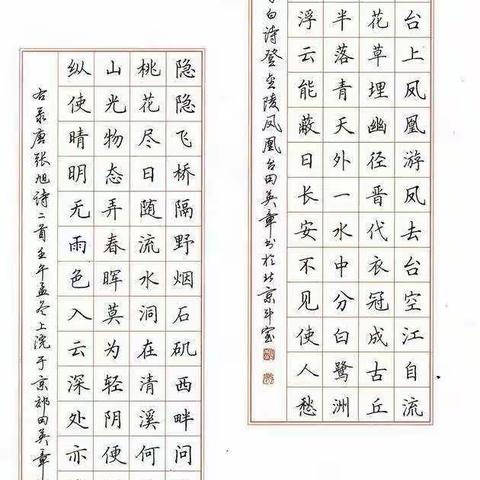 台上凤凰游凤去台空江自流
花草埋幽径晋代衣冠成古丘
半落青天外一水中分白鹭洲
浮云能蔽日长安不见使人愁
白诗登金陵凤凰台田英章书于北京斗室
隐隐飞桥隔野烟石矶西畔问
桃花尽日随流水洞在清溪何
山光物态弄春晖莫为轻阴便
纵使晴明无雨色入云深处亦
右录唐张旭诗二首壬午孟冬上浣于京郊田英章